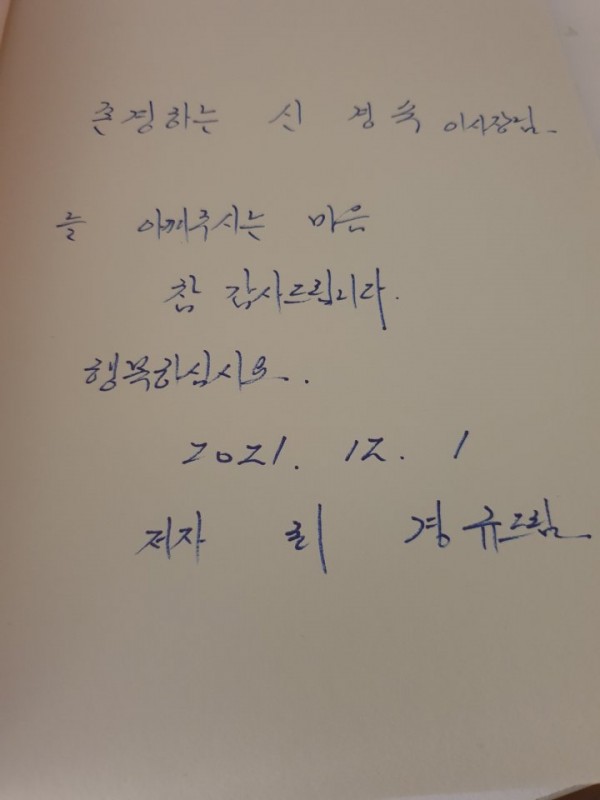 존경하는 신 경숙 이사장님
늘 아껴주시는 마음
참 감사드립니다.
행복하십시오.
2021. 12. 1
저자 최 경규드림